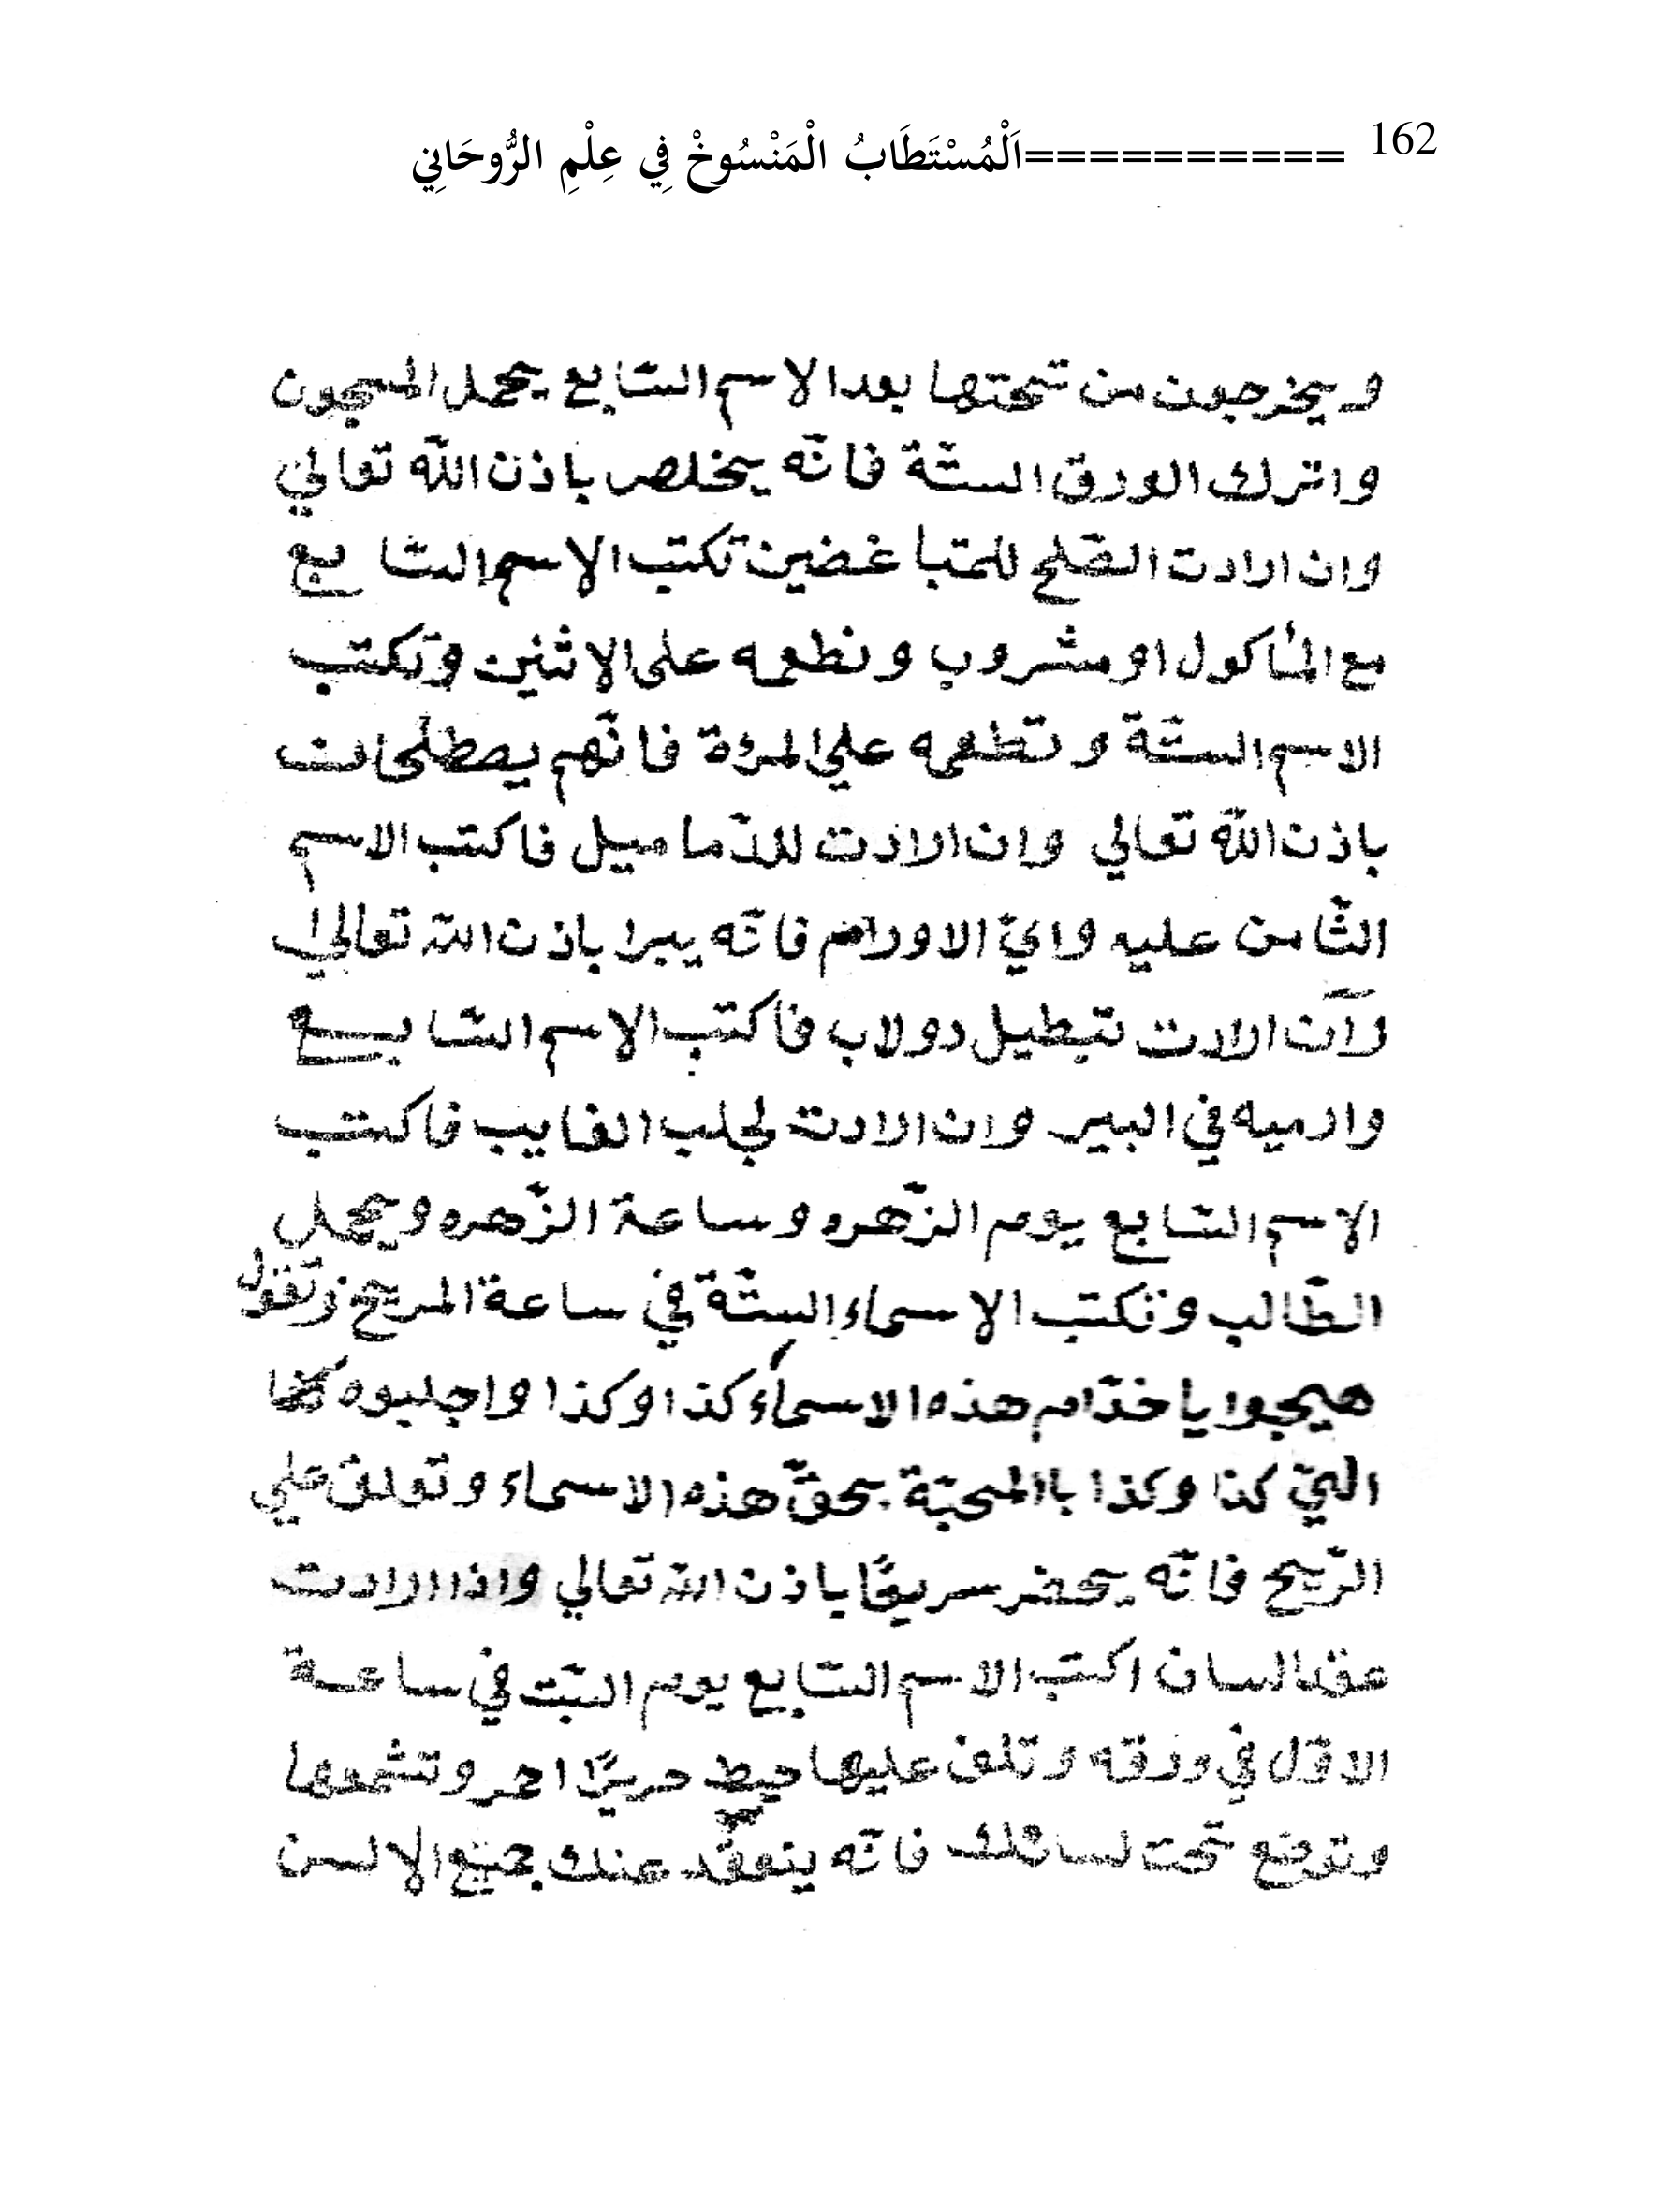 162 ==========اَلْمُسْتَطَابُ الْمَنْسُوخْ فِي عِلْمِ الرُّوحَانِي
ويخرجون من تحتها بعد الاسم السّابع يحمل المسجون
واترك الورق الستّة فانّه يخلص باذن اللّه تعالي
وان ارادت الصّلح للمتباغضين تكتب الاسم السّابع
مع المأكول او مشروب ونطعمه على الاثنين وتكتب
الاسم الستّة وتطعمه علي المرؤة فانّهم يصطلحان
باذن اللّه تعالي وان الارادت للدّماميل فاكتب الاسم
الثّامن عليه وايّ الاورام فانّه يبرا باذن اللّه تعالي
وآن ارادت تبطيل دولاب فاكتب الاسم السّابع
وارميه في البير وان الارادت لجلب الغايب فاكتب
الاسم السّابع يوم الزّهره وساعة الزّهره ويحمل
الطّالب وتكتب الاسماء الستّة في ساعة المريخ وتقول
هيجوا يا خدّام هذه الاسماء كذا وكذا واجلبوه
الّتي كذا وكذا باالمحبّة بحقّ هذه الاسماء وتعلق علي
الرّيح فانّه يحضر سريعًا باذن اللّه تعالي واذا ارادت
عقد السان اكتب الاسم السّابع يوم السّبت في ساعة
الاوّل في ورقه وتلف عليها خيط حريرًا احمر وتشمعها
وتوضع تحت لسانك فانّه ينعقد عنك جميع الالسن